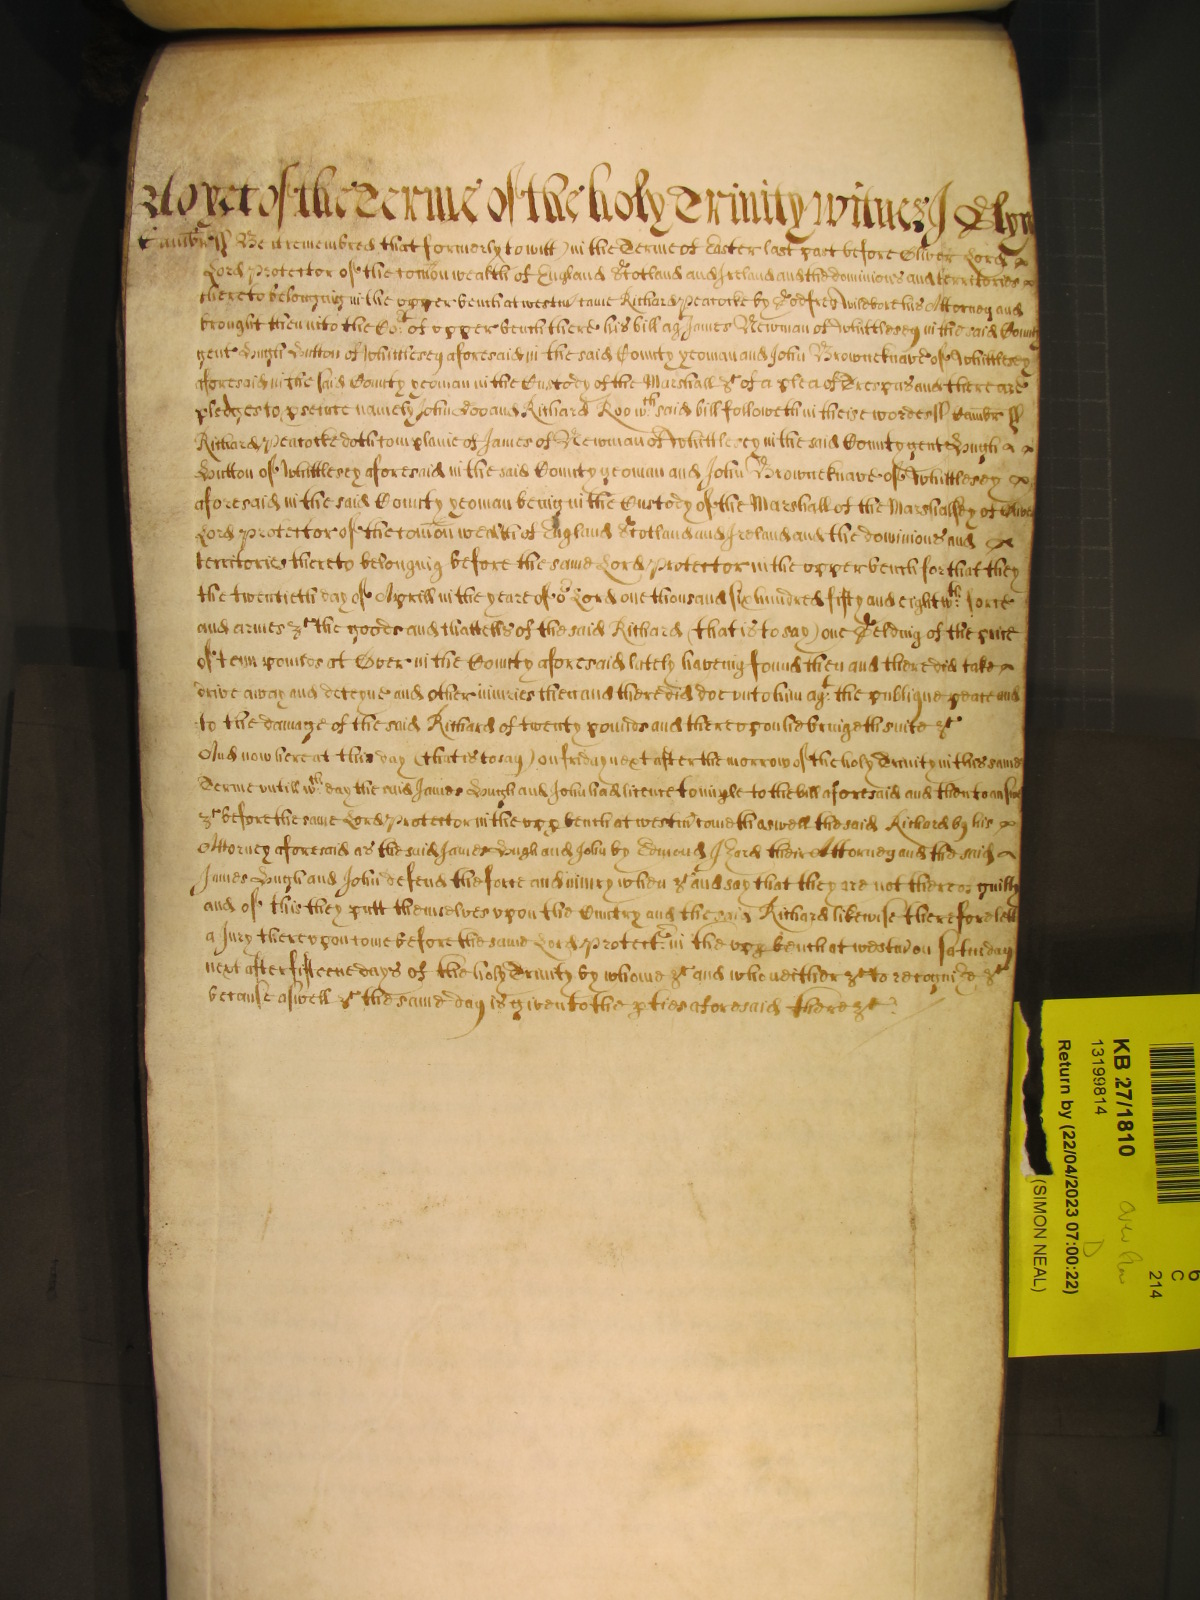 yet of the Terme of the holy Trinity witnes J Glyn
Cambr ss Be it remembred that formerly to witt (in the Terme of Easter last past before Oliver Lord
Lord Protector of the comōn wealth of England Scotland and Ireland and the dominions and territories
thereto belonging in the upper bench at westm came Richard Peacocke by Godfrey Wildbore his Attorney and
brought then into the Cort of upper bench there his bill agt James Newman of Whittlesey in the said County
gent Hugh Hutton of Whittlesey aforesaid in the said County yeoman and John Browneknave of Whittlesey
aforesaid in the said County yeoman in the Custody of the Marshall &c of a plea of Trespas and there are
pledges to psecute namely John doo and Richard Roo wch said bill followeth in theise wordes ss Cambr ss
Richard Peacocke doth complaine of James of Newman of Whittlesey in the said County gent Hugh
Hutton of Whittlesey aforesaid in the said County yeoman and John Browneknave of Whittlesey
aforesaid in the said County yeoman being in the Custody of the Marshall of the Marshalsey of Oliver
Lord Protector of the comōn wealth of England Scotland and Ireland and the dominions and
territories thereto belonging before the same Lord Protector in the upper bench for that they
the twentieth day of Aprill in the yeare of or Lord one thousand six hundred fifty and eight wth force
and armes &c the goodes and chattells of the said Richard (that is to say) one Gelding of the price
of tenn poundes at Over in the County aforesaid lately haveing found then and there did take
drive away and deteyne and other iniuries then and there did doe unto him agt the publique peace and
to the damage of the said Richard of twenty pounds and thereupon hee bringeth suite &c
And now here at this day (that is to say) on friday next after the morrow of the holy Trinity in this same
Terme untill wch day the said James Hugh and John had licence to imple to the bill aforesaid and then to answ
&c before the same Lord Protector in the upp bench at westm cometh aswell the said Richard by his
Attorney aforesaid as the said James Hugh and John by Edmund Izard their Attorney and the said
James Hugh and John defend the force and iniury when &c and say that they are not thereof guilty
and of this they putt themselves upon the Cuntry and the said Richard likewise therefore lett
a Jury thereupon come before the same Lord Protectr in the upp bench at westm on saturday
next after fifteene days of the holy Trinity by whome &c and who neither &c to recognize &c
because aswell &c the same day is given to the pties aforesaid there &c
KB 27/1810
13199814
Return by (22/04/2023 07:00:22)
(SIMON NEAL)
6
C
214